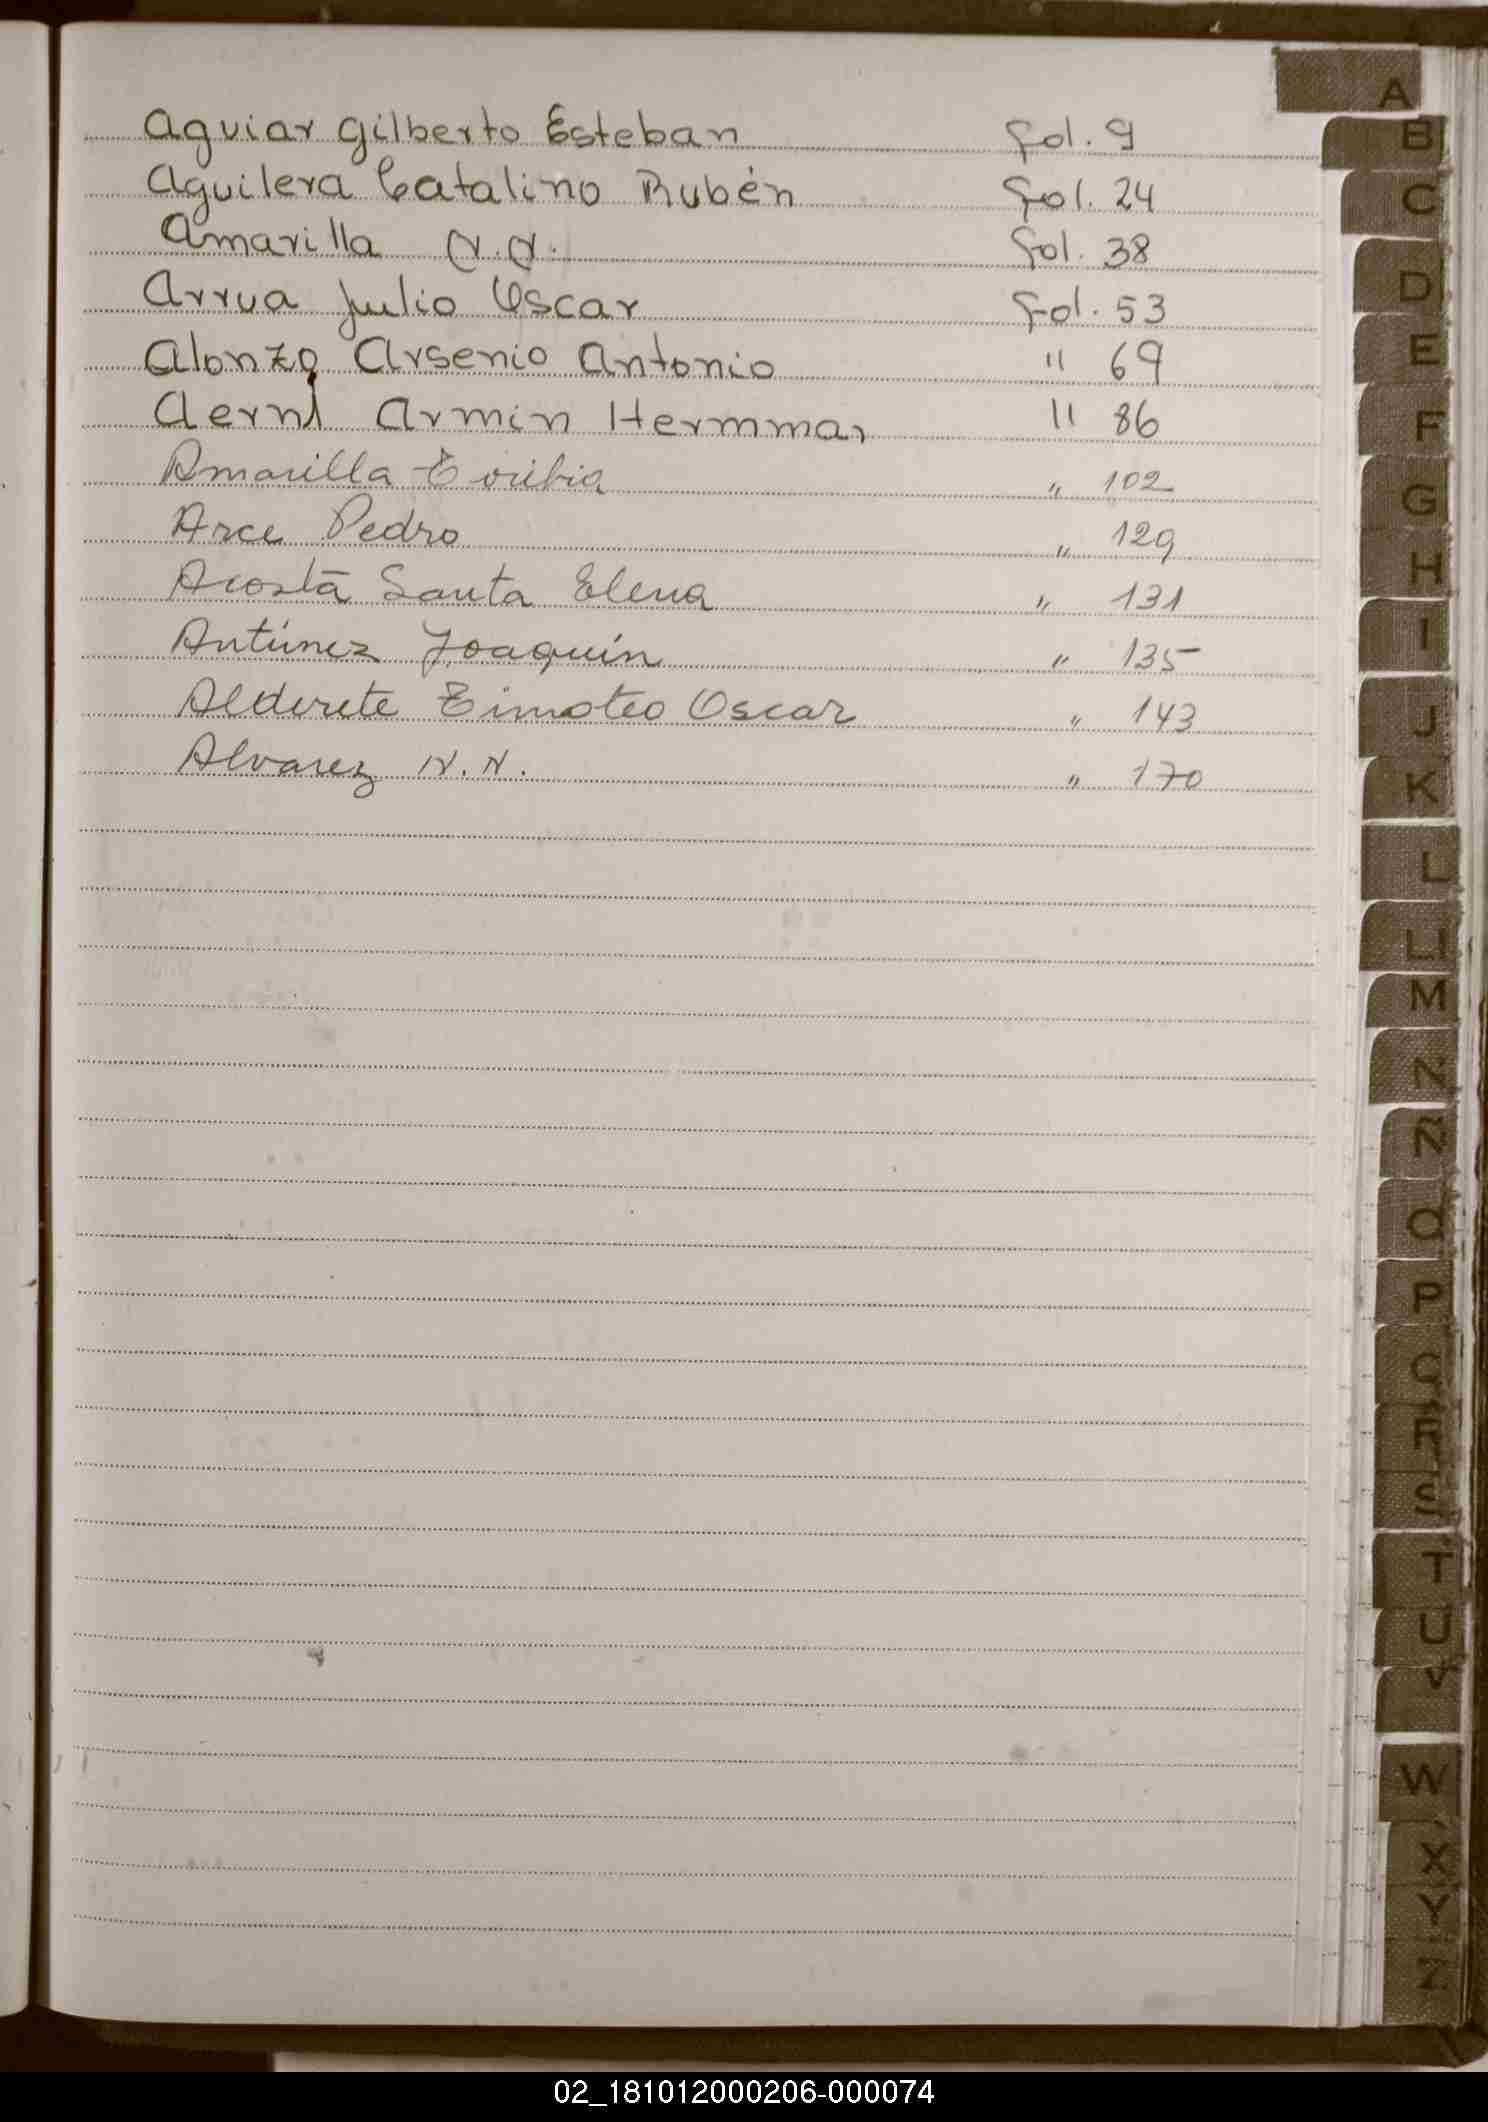 Aguiar Gilberto Esteban fol. 9
Aguilera Catalino Rubén fol. 24
Amarilla N.N. fol. 38
Arrua Julio Oscar fol. 53
Alonzo Arsenio Antonio " 69
Aerni Armin Hermman " 86
Amarilla Toribia " 102
Arce Pedro " 129
Acosta Santa Elena " 131
Antúnez Joaquín " 135
Alderete Timoteo Oscar " 143
Alvarez N.N. " 170
A
B
C
D
E
F
G
H
I
J
K
L
Ll
M
N
Ñ
O
P
Q
R
S
T
U
V
W
X
Y
Z
02_181012000206-000074